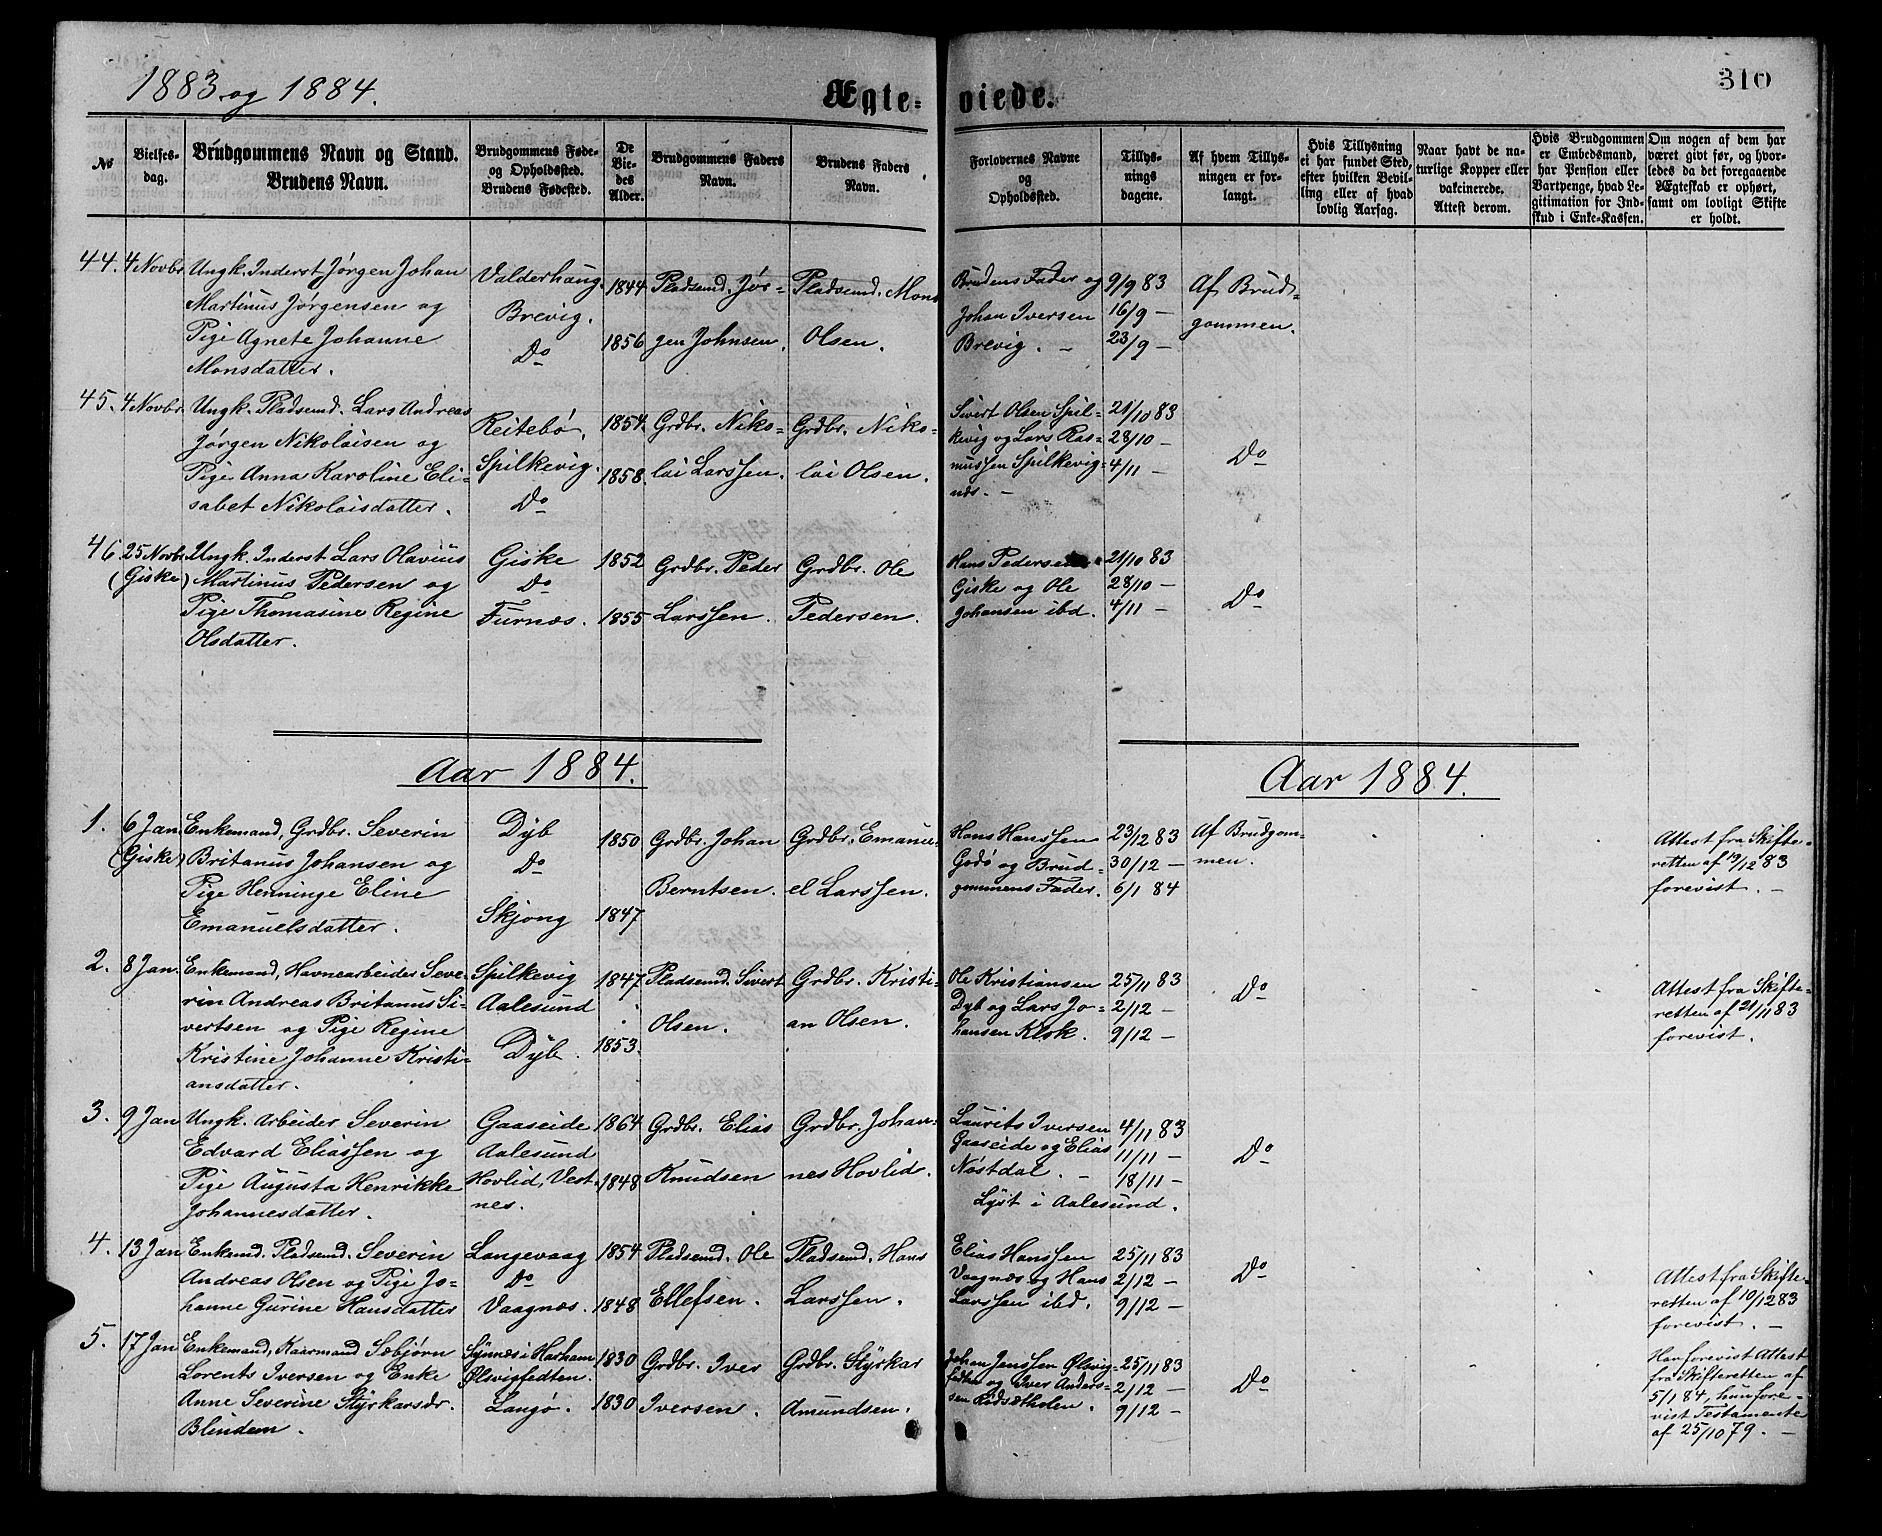 1883 og 1884.
Ægte=viede.
310
No
Vielses-dag.
Brudgommens Navn og Stand.
Brudens Navn.
Brudgommens Føde-
og Opholdssted.
Brudens Fødested.
De
Vie-
des
Alder.
Brudgommens Faders
Navn.
Brudens Faders
Navn.
Forlovernes Navne
og
Opholdssted.
Tillys-
nings
dagene.
Af hvem Tillys-
ningen er for-
langt.
Hvis Tillysning
ei har fundet Sted,
efter hvilken Bevil-
ling eller af hvad
lovlig Aarsag.
Naar havt de na-
turlige Kopper eller
vakcinerede.
Attest derom.
Hvis Brudgommen
er Embedsmand,
har Pension eller
Vartpenge, hvad Le-
gitimation for Ind-
skud i Enke-Kassen.
Om nogen af dem har
været givt før, og hvor-
ledes da det foregaaende
Ægteskab er ophørt,
samt om lovligt Skifte
er holdt.
44. 4 Novbr.
Ungk. Inderst Jørgen Johan
Martinus Jørgensen og
Pige Agnete Johanne
Monsdatter.
Valderhaug.
Brevig.
Do
1844
1856
Pladsemd. Jør-
gen Johnsen.
Pladsemd. Mons
Olsen.
Brudens Fader og
Johan Iversen
Brevig. —
9/9 83
16/9 —
23/9 —
Af Brud-
gommen.
45. 4 Novbr.
Ungk. Pladsemd. Lars Andreas
Jørgen Nikolaisen og
Pige Anna Karoline Eli-
sabet Nikolaisdatter.
Reitebø.
Spilkevig.
Do
1854.
1858.
Grdbr. Niko-
lai Larssen.
Grdbr. Niko-
lai Olsen.
Sivert Olsen Spil-
kevig og Lars Ras-
mussen Spilkevig-
nds. —
21/10 83
28/10 —
4/11 —
Do
46 25 Novbr.
(Giske)
Ungk. Inderst Lars Olavius
Martinus Pedersen og
Pige Thomasine Regine
Olsdatter.
Giske
Do
Furnæs.
1852
1855
Grdbr. Peder
Larssen.
Grdbr. Ole
Pedersen.
Hans Pedersen
Giske og Ole
Johansen ibd.
21/10 83
28/10 —
4/11 —
Do
Aar 1884.
Aar 1884.
1. 6 Jan.
(Giske)
Enkemand, Grdbr. Severin
Britanus Johansen og
Pige Henninge Eline
Emanuelsdatter.
Dyb
Do
Skjong
1850
1847
Grdbr. Johan
Berntsen.
Grdbr. Emanu-
el Larssen.
Hans Hanssen
Godø og Brud-
gommens Fader.
23/12 83
30/12 —
6/1 84
Af Brudgom-
men.
Attest fra Skifte-
retten af 19/12 83
forevist. —
2. 8 Jan.
Enkemand, Havnearbeider Seve-
rin Andreas Britanus Si-
vertsen og Pige Regine
Kristine Johanne Kristi-
ansdatter.
Spilkevig
Aalesund
Dyb.
1847
1853.
Pladsemd. Sivert
Olsen.
Grdbr. Kristi-
an Olsen.
Ole Kristiansen
Dyb og Lars Jo-
hansen Klok.
25/11 83
2/12 —
9/12 —
Do
Attest fra Skifte-
retten af 21/11 83
forevist.
3. 9 Jan
Ungk. Arbeider Severin
Edvard Eliassen og
Pige Augusta Henrikke
Johannesdatter.
Gaaseide
Aalesund
Hovlid, Vest-
nes.
1864
1848
Grdbr. Elias
Knudsen
Grdbr. Johan-
nes Hovlid.
Laurits Iversen
Gaaseide og Elias
Nøstdal. —
Lyst i Aalesund.
4/11 83
11/11 —
18/11 —
Do
4. 13 Jan
Enkemd. Pladsemd. Severin
Andreas Olsen og Pige Jo-
hanne Gurine Hansdatter
Langevaag
Do
Vaagnæs.
1854
1848
Pladsemd. Ole
Ellefsen.
Pladsemd. Hans
Larssen.
Elias Hanssen
Vaagnæs og Hans
Larssen ibd.
25/11 83
2/12 —
9/12 —
Do
Attest fra Skifte-
retten af 10/12 83
forevist. —
5. 17 Jan
Enkemand, Kaarmand Sæbjørn
Lorents Iversen og Enke
Anne Severine Styrkarsdr.
Blindem.
Synnæs i Harham
Ølsvigfedten.
Langø.
1830
1830
Grdbr. Iver
Iversen.
Grdbr. Styrkar
Amundsen.
Johan Jenssen Ølsvig-
fedten og Iver Anders-
sen Rødsætholen.
25/11 83
2/12 —
9/12 —
Do
Han forevist Attest
fra Skifteretten af
5/1 84, hun fore-
vist Testamente
af 25/10 79. —